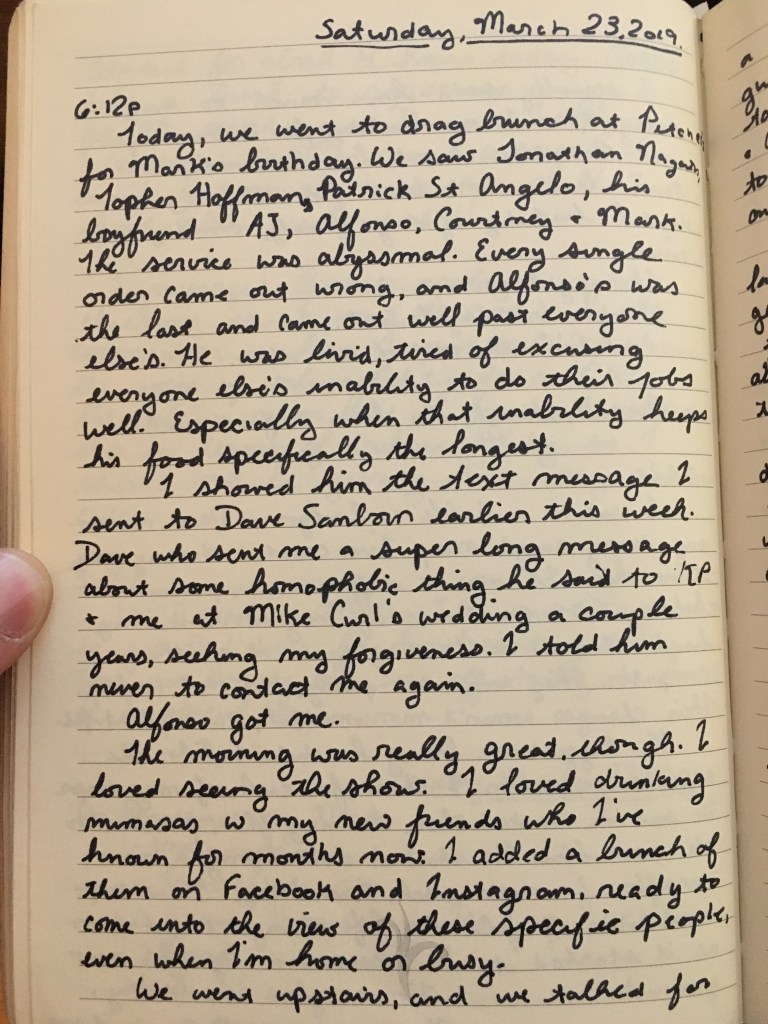 Saturday, March 23, 2019.
6:12p
Today, we went to drag brunch at
for Mark's birthday. We saw Jonathan
Topher Hoffman, Patrick St Angelo, his
boyfriend AJ, Alfonso, Courtney + Mark.
The service was abyssmal. Every single
order came out wrong, and Alfonso's was
the last and came out well past everyone
else's. He was livid, tired of excusing
everyone else's inability to do their jobs
well. Especially when that inability keeps
his food specifically the longest.
I showed him the text message I
sent to Dave Sanborn earlier this week.
Dave who sent me a super long message
about some homophobic thing he said to KP
+ me at Mike Curl's wedding a couple
years, seeking my forgiveness. I told him
never to contact me again.
Alfonso got me.
The morning was really great, though. I
loved seeing the show. I loved drinking
mimasas w my new friends who I've
known for months now. I added a bunch of
them on Facebook and Instagram, ready to
come into the view of these specific people,
even when I'm home or busy.
We went upstairs, and we talked for